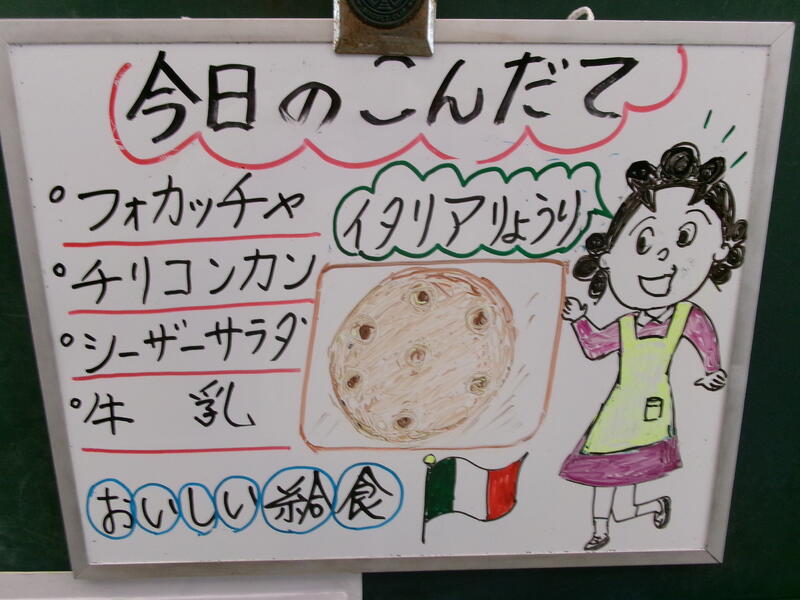 今日のこんだて
フォカッチャ
イタリアりょうり
チリコンカン
シーザーサラダ
牛 乳
おいしい給食